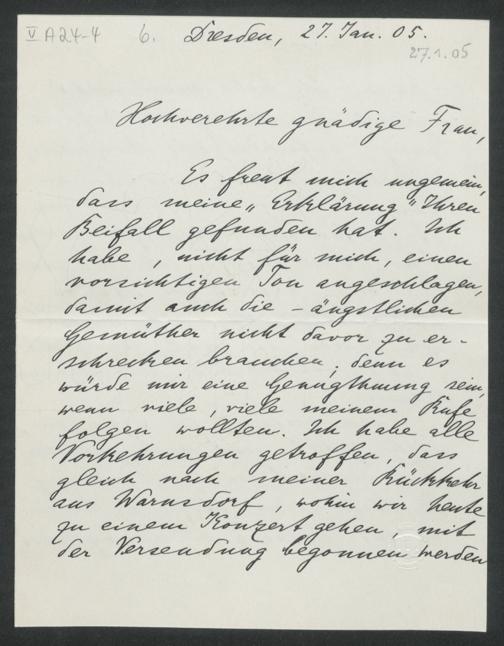 V A24-4 6. Dresden, 27. Jan. 05.
27.1.05
Hochverehrte gnädige Frau,
Es freut mich ungemein,
dass meine „Erklärung" Ihren
Beifall gefunden hat. Ich
habe, nicht für mich, einen
vorsichtigen Ton angeschlagen,
damit auch die – ängstlichen
Gemüther nicht davor zu er-
schrecken brauchen, denn es
würde mir eine Genugthuung sein,
wenn viele, viele meinem Rufe
folgen wollten. Ich habe alle
Vorkehrungen getroffen, dass
gleich nach meiner Rückkehr
aus Warnsdorf, wohin wir heute
zu einem Konzert gehen, mit
der Versendung begonnen werden